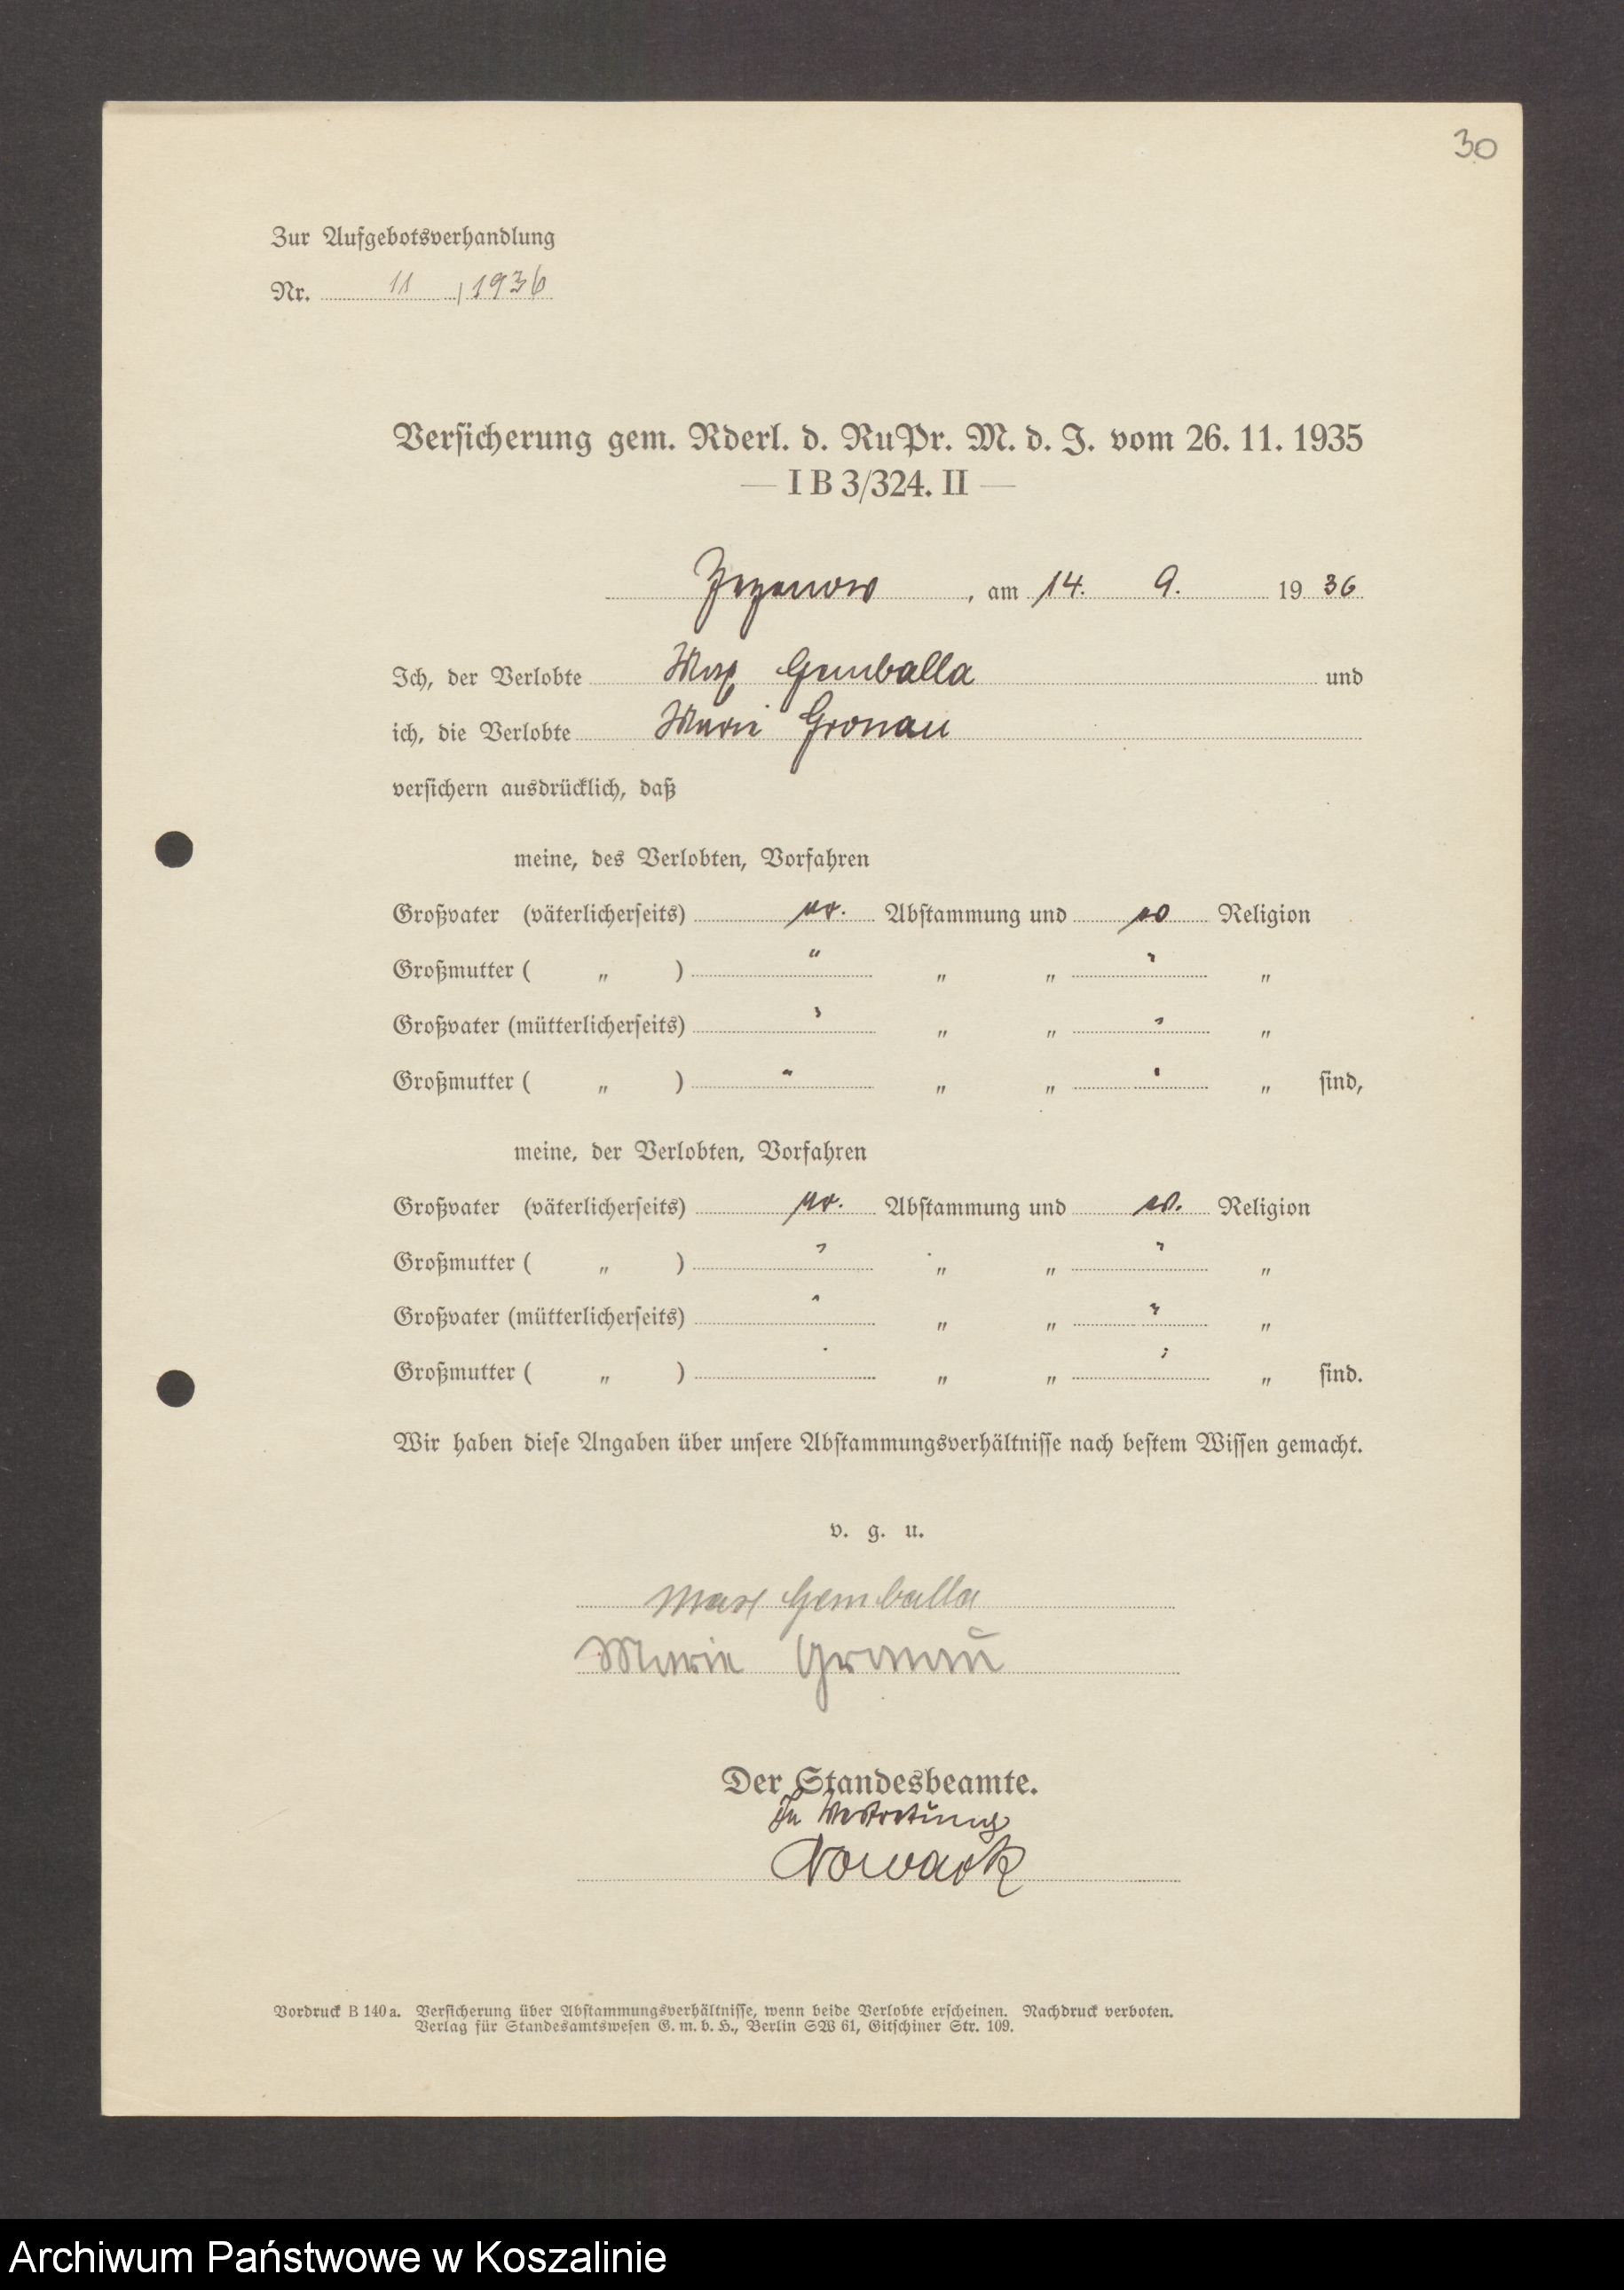 30
Zur Aufgebotsverhandlung
Nr. 11 / 1936
Versicherung gem. Rderl. d. RuPr. M. d. J. vom 26. 11. 1935
— I B 3/324. II —
Zezenow, am 14. 9. 1936
Ich, der Verlobte Max Gemballa und
ich, die Verlobte Marie Gronau
versichern ausdrücklich, daß
meine, des Verlobten, Vorfahren
Großvater (väterlicherseits) ar. Abstammung und ev Religion
Großmutter ( „ ) " „ „ " „
Großvater (mütterlicherseits) " „ „ " „
Großmutter ( „ ) " „ „ " „ sind,
meine, der Verlobten, Vorfahren
Großvater (väterlicherseits) ar. Abstammung und ev. Religion
Großmutter ( „ ) " „ „ " „
Großvater (mütterlicherseits) " „ „ " „
Großmutter ( „ ) " „ „ " „ sind.
Wir haben diese Angaben über unsere Abstammungsverhältnisse nach bestem Wissen gemacht.
v. g. u.
Max Gemballa
Marie Gronau
Der Standesbeamte.
In Vertretung
Nowack
Vordruck B 140a. Versicherung über Abstammungsverhältnisse, wenn beide Verlobte erscheinen. Nachdruck verboten.
Verlag für Standesamtswesen G. m. b. H., Berlin SW 61, Gitschiner Str. 109.
Archiwum Państwowe w Koszalinie